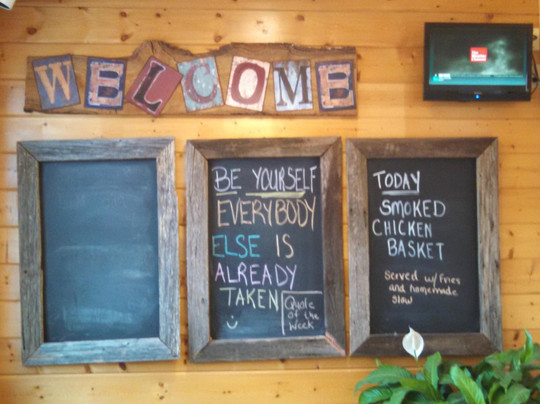 WELCOME
BE YOURSELF
EVERYBODY
ELSE IS
ALREADY
TAKEN
Quote
of the
Week
TODAY
SMOKED
CHICKEN
BASKET
Served w/ fries
and homemade
slaw